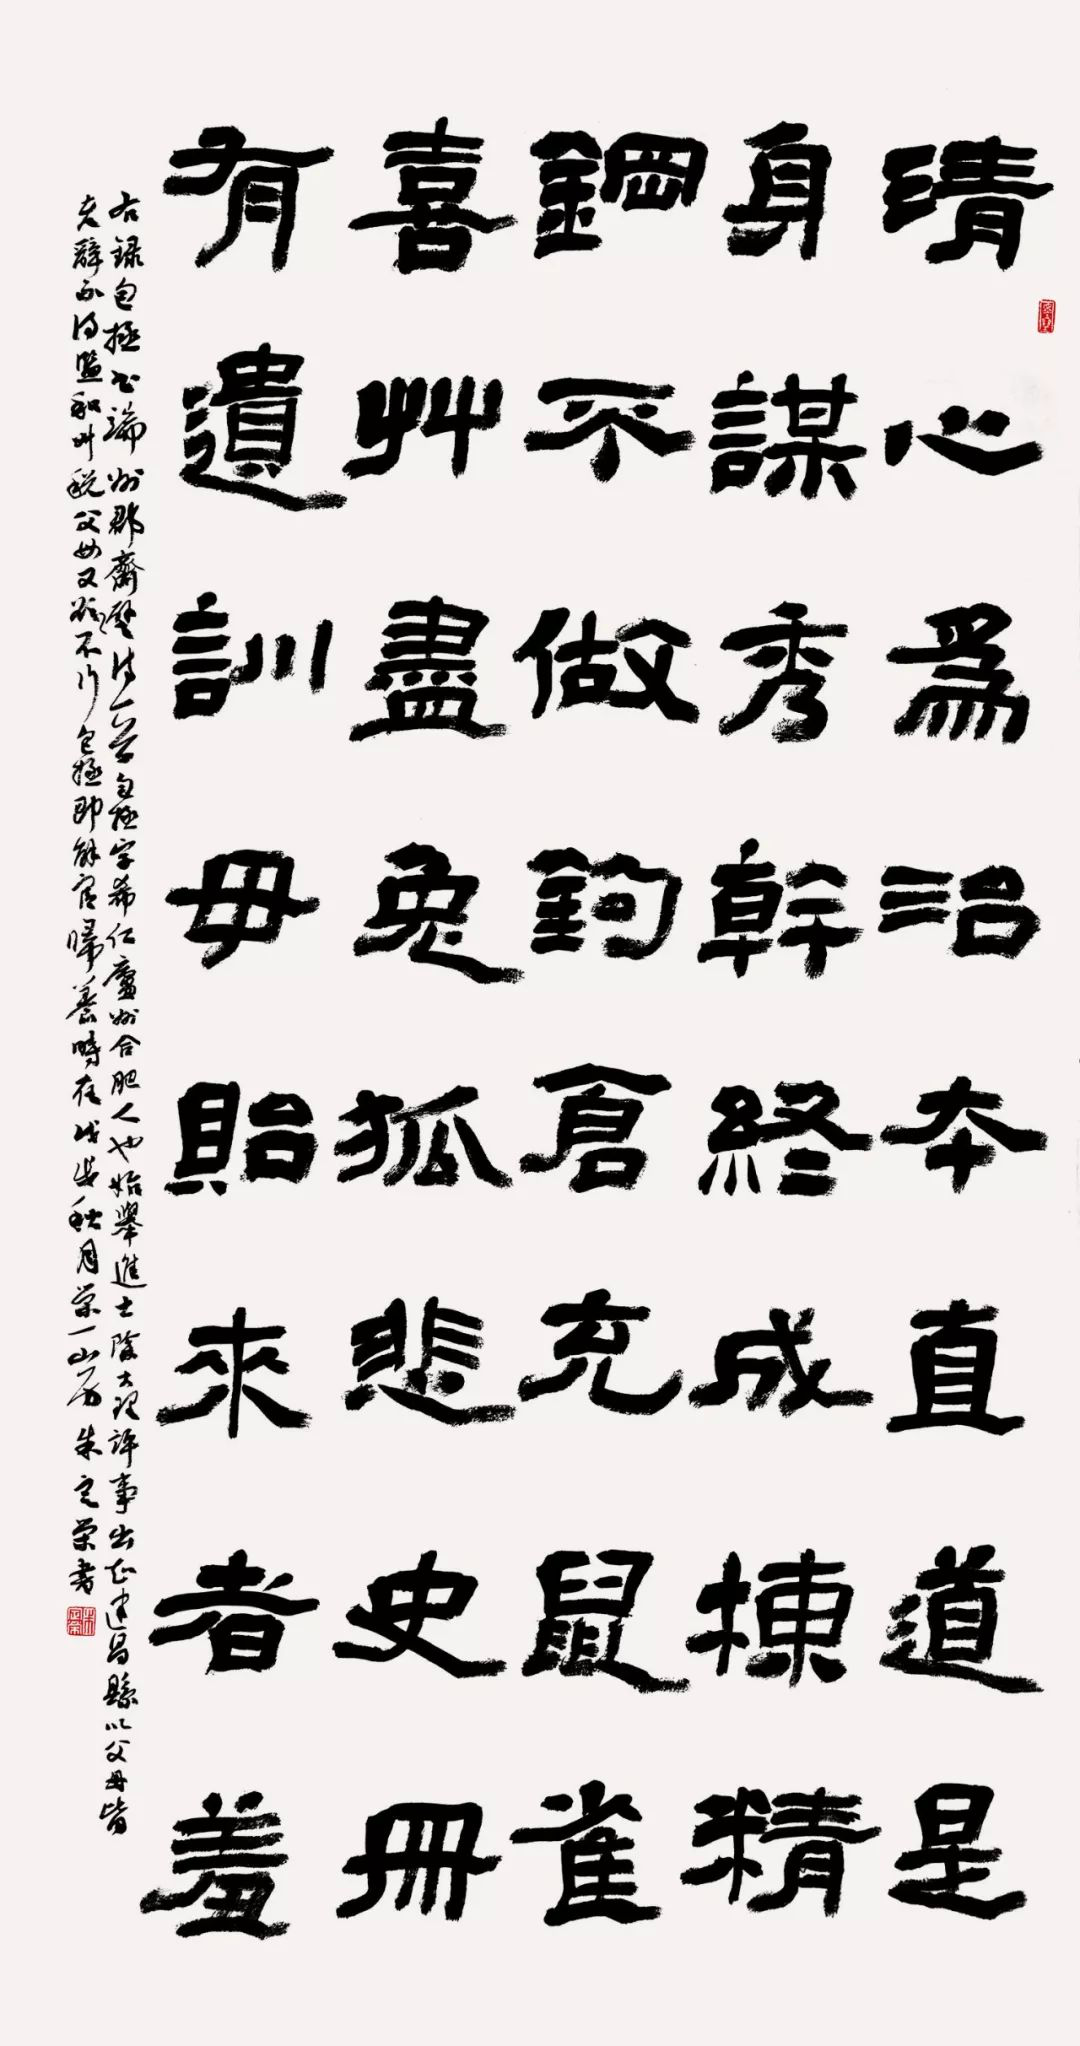 清心為治本直道是
身謀秀幹終成棟精
鋼不做鉤倉充鼠雀
喜艸盡兔狐悲史冊
有遺訓毋貽來者羞
右錄包拯書端州郡齋壁詩一首包拯字希仁廬州合肥人也始舉進士除大理評事出知建昌縣以父母皆
老辭不得監和州稅父母又欲不行包拯即解官歸養時在戊戌秋月榮一山房朱定榮書